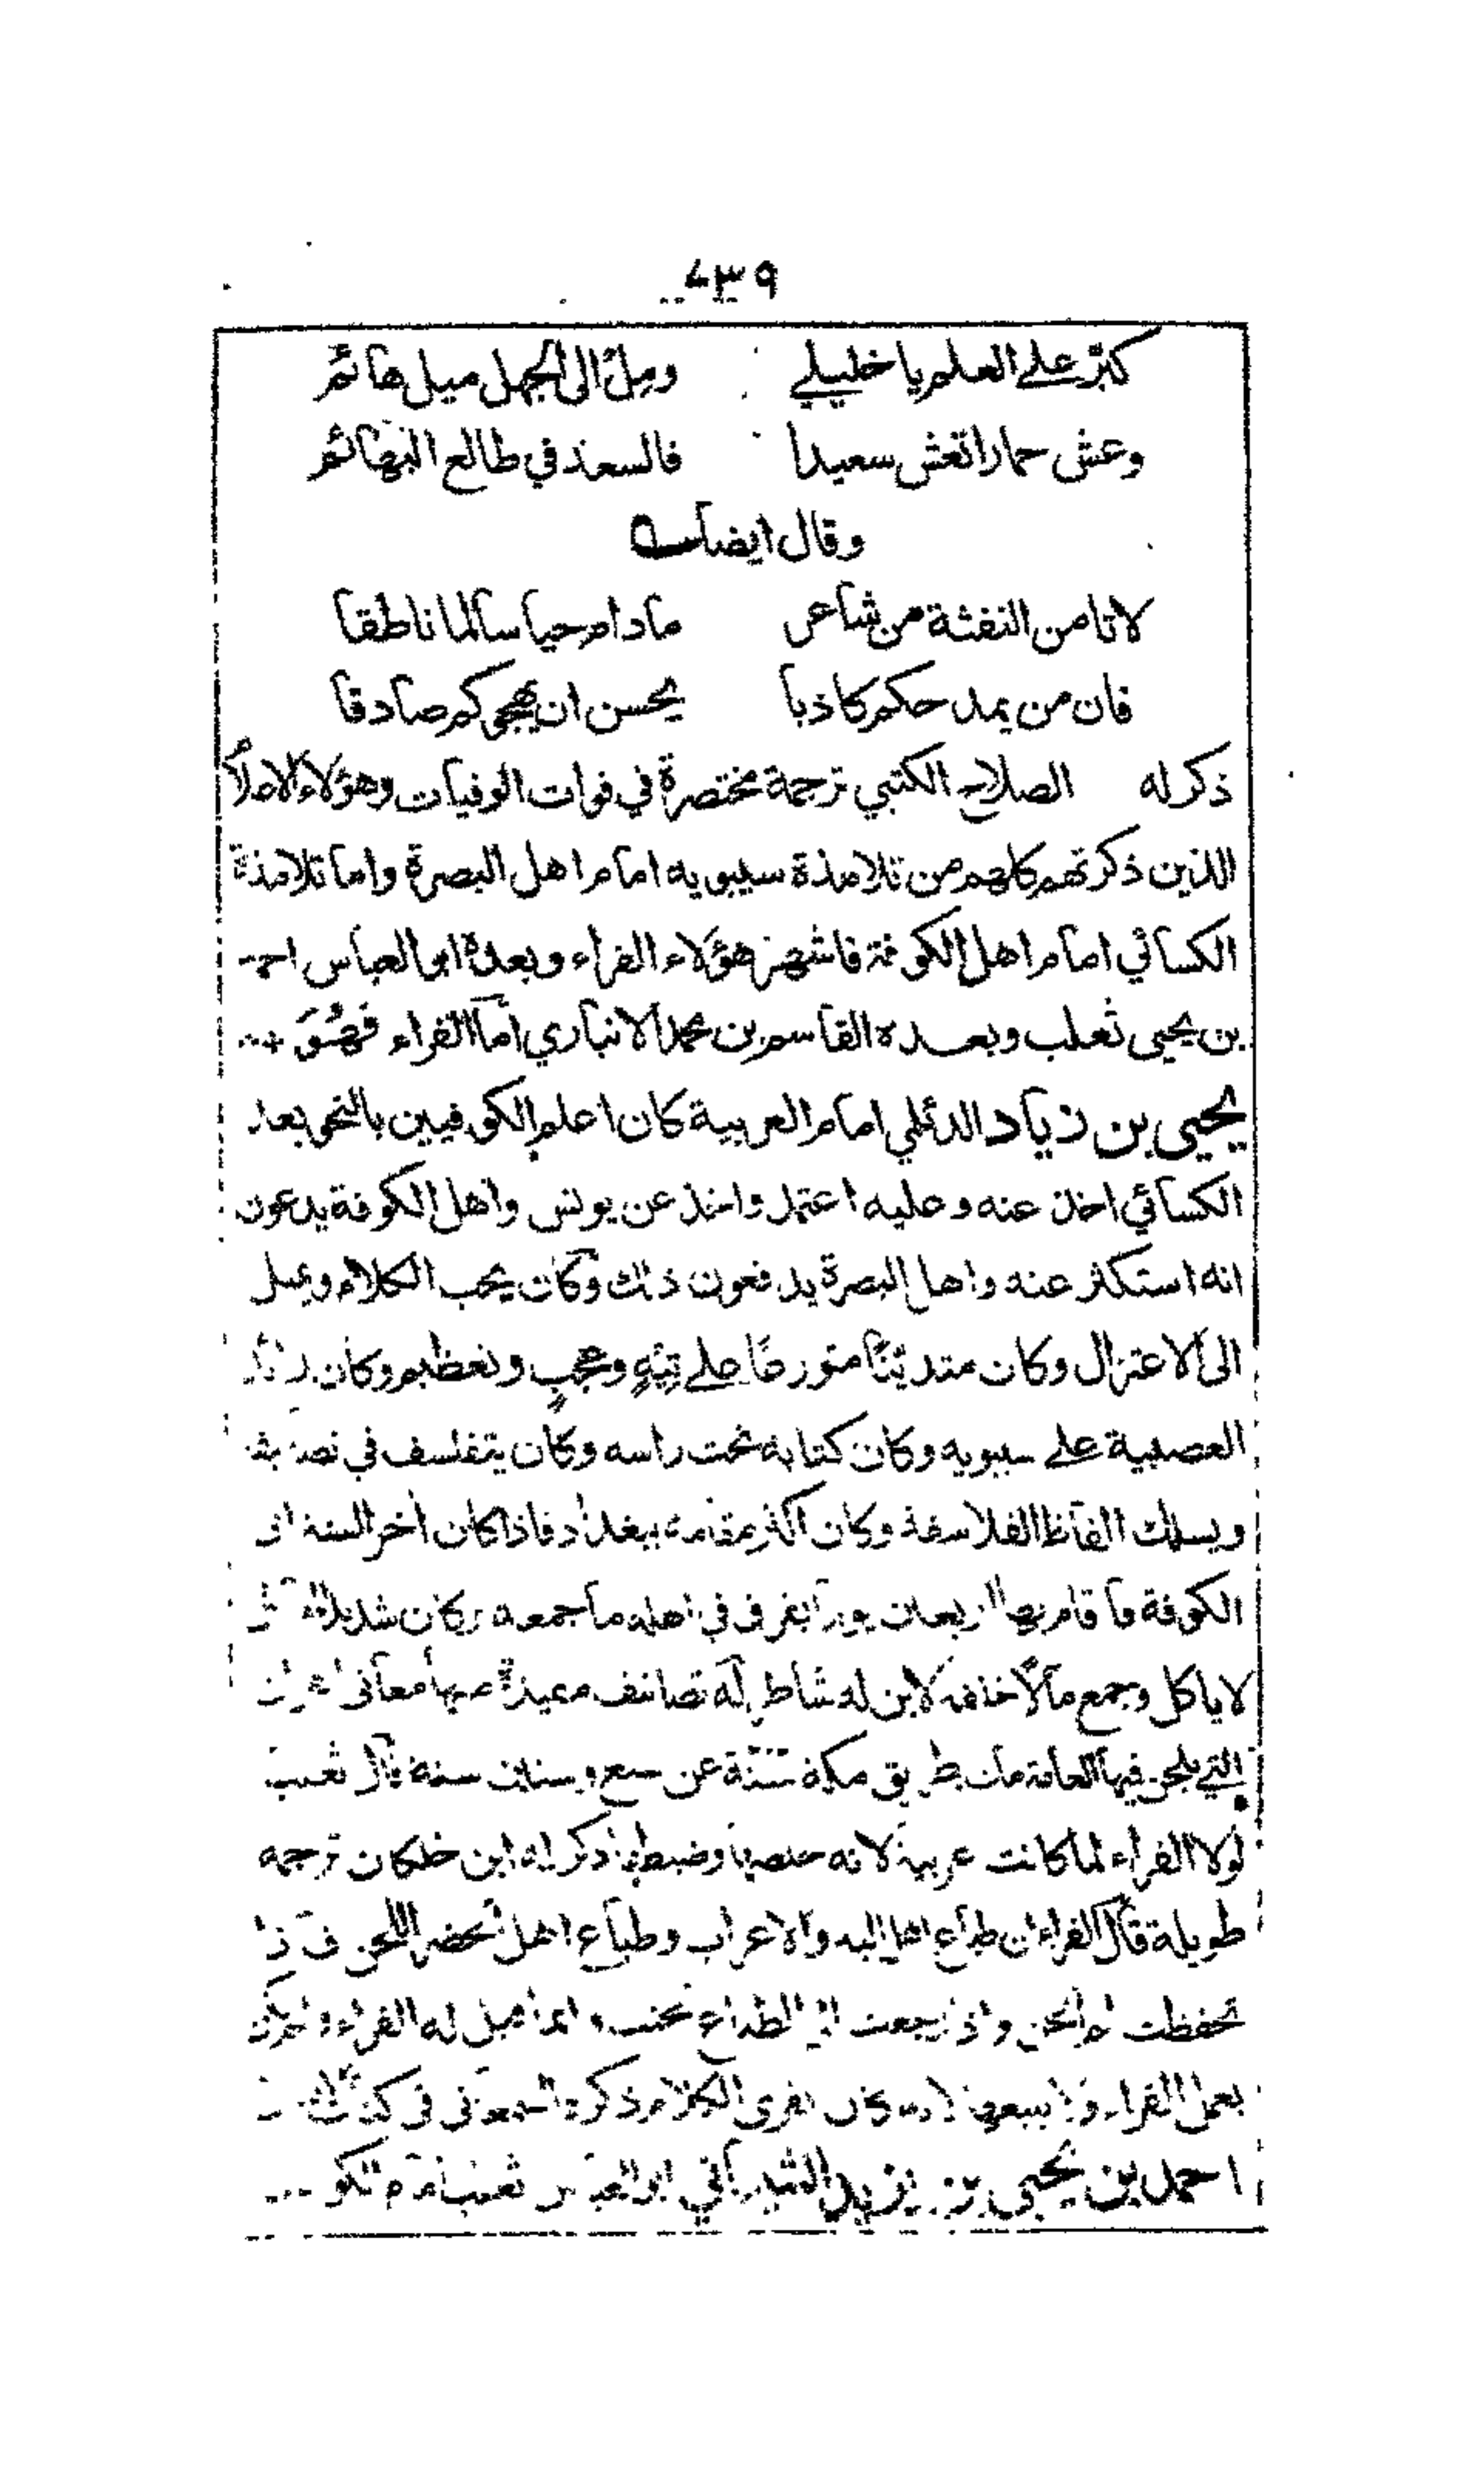 ٧٣٩
كبّر على العلم يا خليلي ومِلْ الى الجهل ميل هائم
وعش حمارا تعش سعيدا فالسعد في طالع البهائم
وقال ايضا
لا تامن النفثة من شاعر ما دام حيا سالما ناطقا
فان من يمدحكم كاذبا يحسن ان يهجوكم صادقا
ذكر له الصلاح الكتبي ترجمة مختصرة في فوات الوفيات وهؤلاء الاعلام
الذين ذكرتهم كلهم من تلامذة سيبويه امام اهل البصرة واما تلامذة
الكسائي امام اهل الكوفة فاشهرهم هؤلاء الفراء وبعده ابو العباس احمد
بن يحيى ثعلب وبعده القاسم بن محمد الانباري اما الفراء فهو
يحيى بن زياد الدئلي امام العربية كان اعلم الكوفيين بالنحو بعد
الكسائي اخذ عنه وعليه اعتمد واخذ عن يونس واهل الكوفة يدعون
انه استكثر عنه واهل البصرة يدفعون ذلك وكان يحب الكلام ويميل
الى الاعتزال وكان متديّنًا متورعًا على تِيْهٍ وعجبٍ وتعظيم وكان
العصبية على سيبويه وكان كتابه تحت راسه وكان يتفلسف في
ويسلك الفاظ الفلاسفة وكان اكثر مقامه ببغداد فاذا كان اخر السنة اتى
الكوفة فاقام بها اربعين يوما يفرق في اهله ما جمعه وكان شديد
لا ياكل وجمع مالا خلفه لابن له شاطر له تصانيف مفيدة منها معاني
التي يلحن فيها العامة مات بطريق مكة سنة عن سبع وستين سنة قال ثعلب
لولا الفراء لما كانت عربية لانه خلصها وضبطها ذكر له ابن خلكان ترجمة
طويلة قال الفراء ان طباع اهل البدو الاعراب وطباع اهل الحضر اللحن فاذا
تحفظت لم الحن واذا رجعت الى الطباع لحنت وانما قيل له الفراء ولم يكن
يعمل الفراء ولا يبيعها لانه كان يفري الكلام ذكره السمعاني في كتاب
احمد بن يحيى بن يزيد الشيباني ابو العباس ثعلب امام